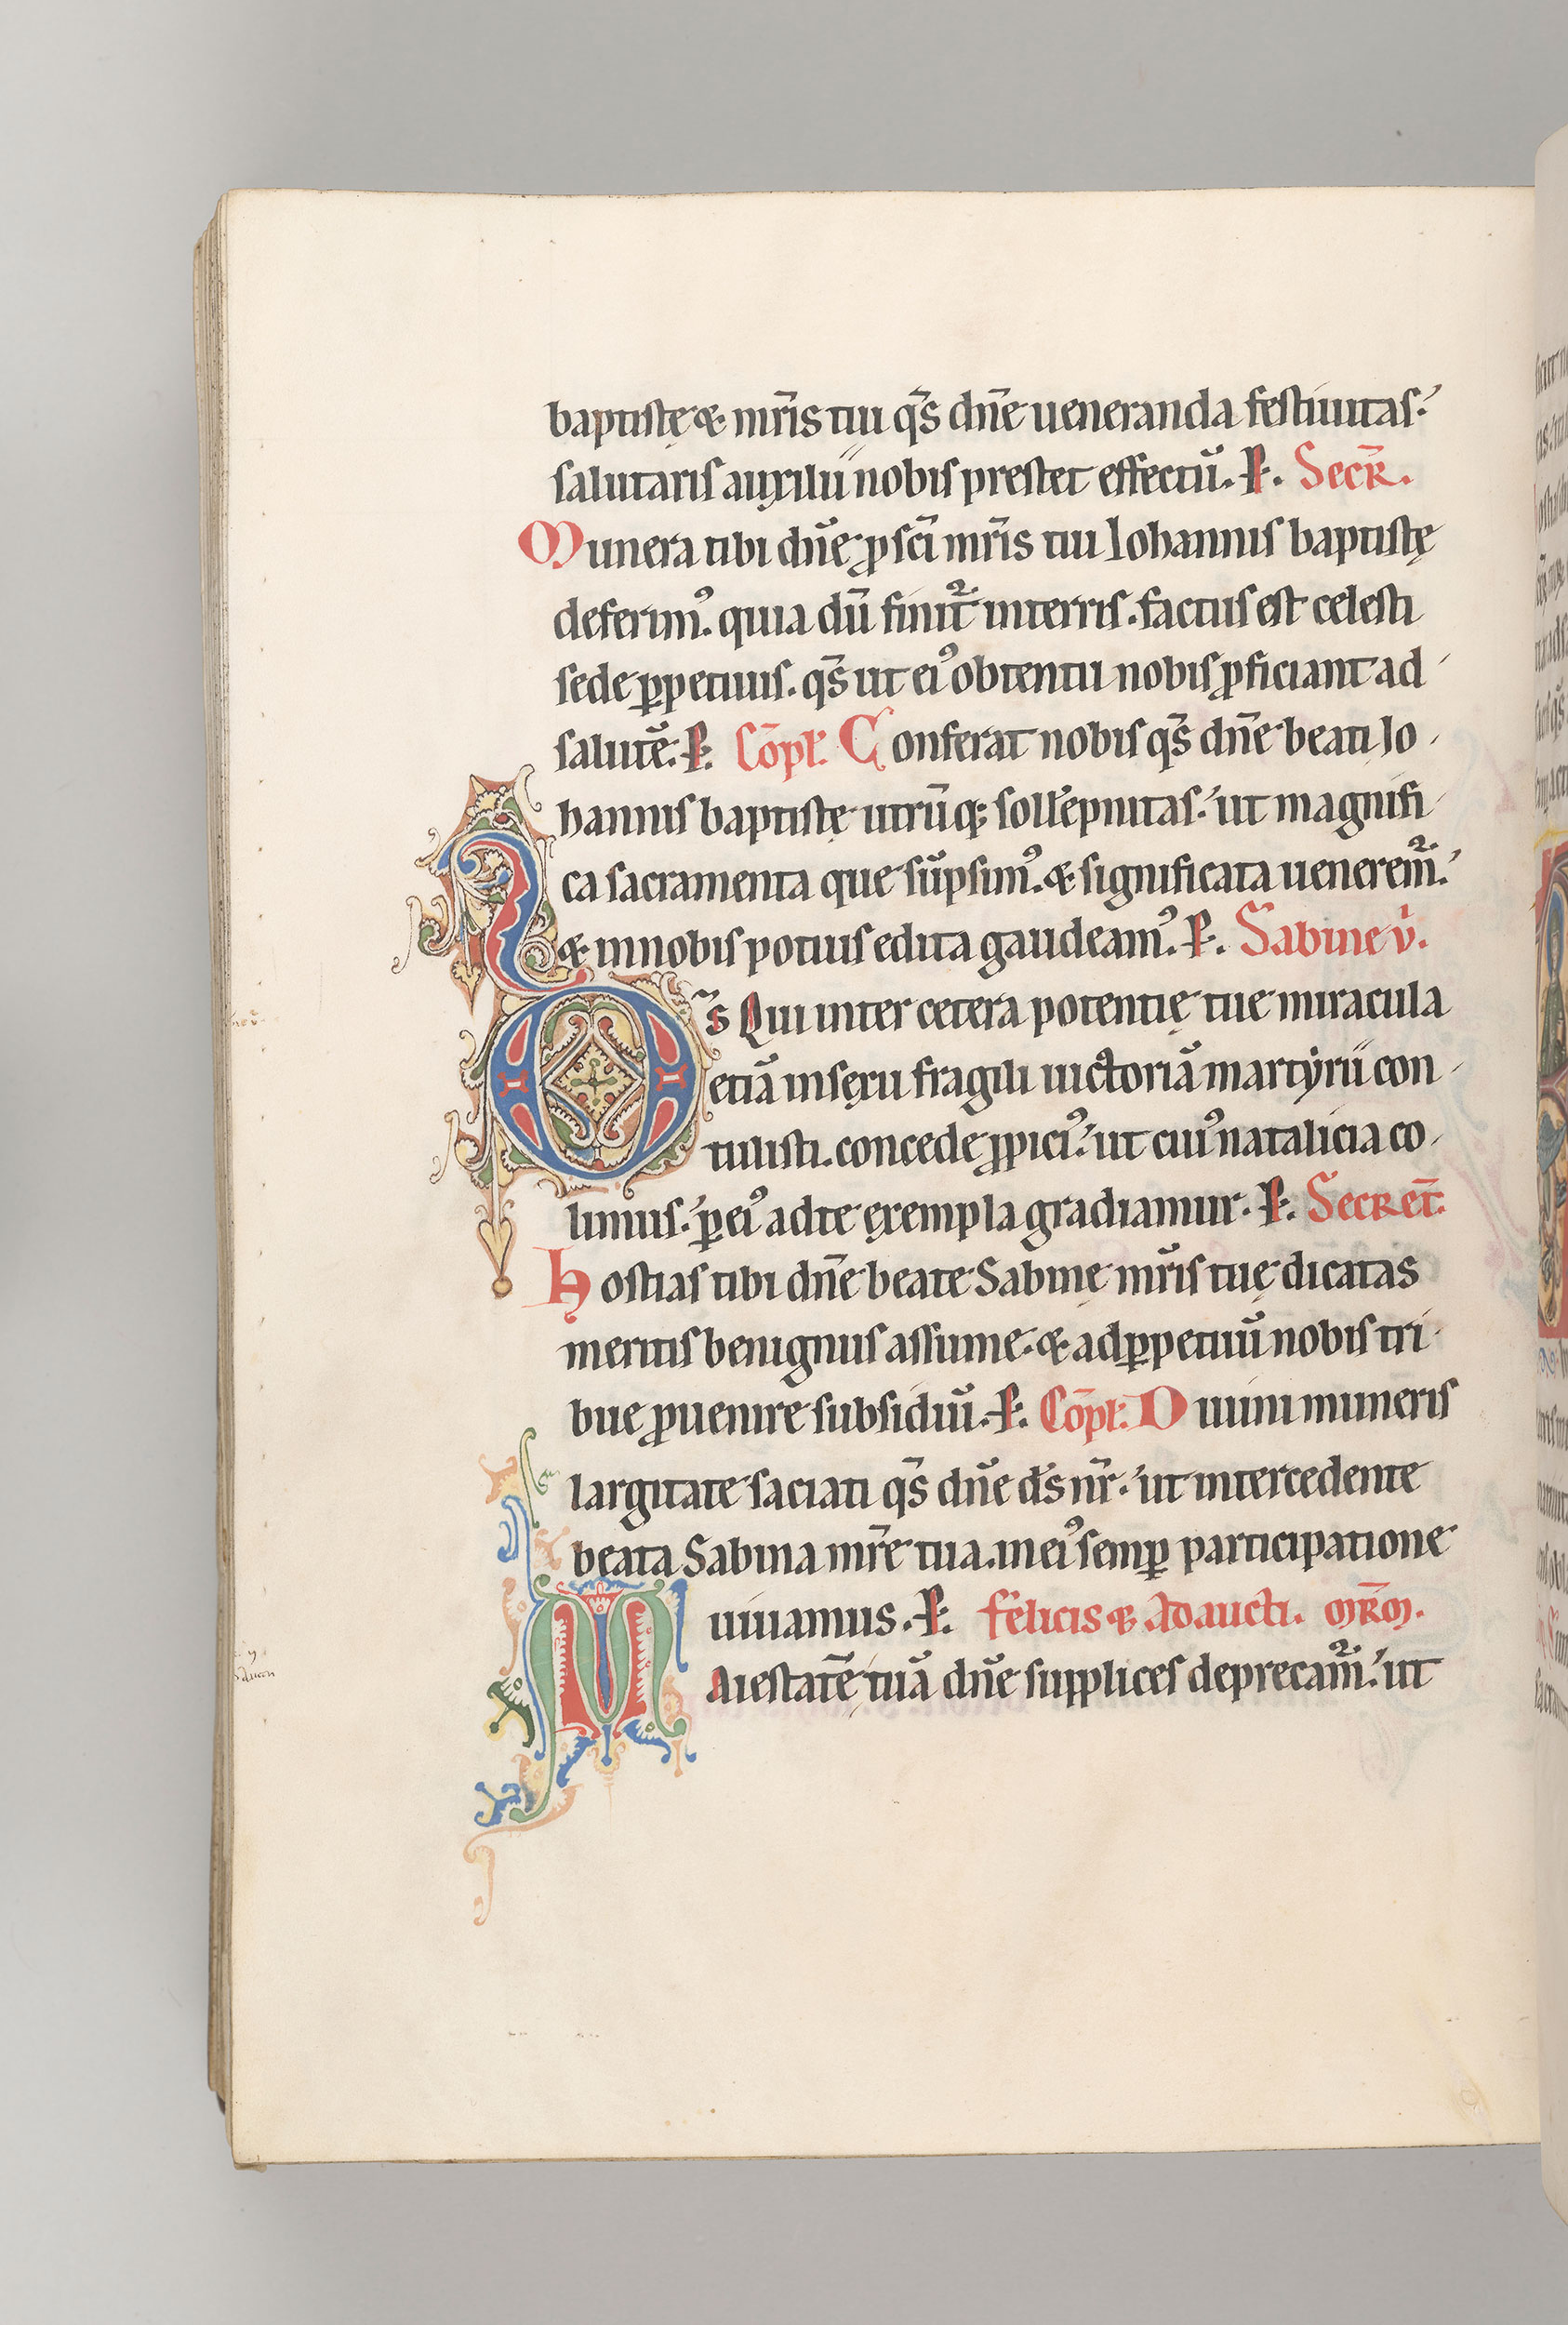 baptistę & mr̄is tui q̄s dn̄e ueneranda festiuitas.
salutaris auxilii nobis prestet effectū. P. Secr̄.
Munera tibi dn̄e ꝓ sc̄i mr̄is tui Iohannis baptistę
deferim᾽. quia dū finit᷑ interris. factus est celesti
sede ꝑpetuus. q̄s ut ei᾽ obtentu nobis ꝓficiant ad
salutē. P. Cōpl. Conferat nobis q̄s dn̄e beati Io
hannis baptistę utrūq; soll'epnitas. ut magnifi
ca sacramenta que sūpsim᾽. & significata uenerem᷑.
& innobis potius edita gaudeam᾽. P. Sabine v.
Ds̄ Qui inter cetera potentię tue miracula
etiā insexu fragili uictoriā martyrii con
tulisti. concede ꝓpici᾽. ut cui᾽ natalicia co
limus. ꝑ ei᾽ adte exempla gradiamur. P. Secret̄.
Hostias tibi dn̄e beate Sabinę mr̄is tuę dicatas
meritis benignus assume. & adꝑpetuū nobis tri
bue ꝓuenire subsidiū. P. Cōpl. Diuini muneris
largitate saciati q̄s dn̄e ds̄ nr̄. ut intercedente
beata Sabina mr̄e tua. in ei᾽ semꝑ participatione
uiuamus. P. felicis & Adaucti. mr̄m.
Maiestatē tuā dn̄e supplices deprecam᷑. ut